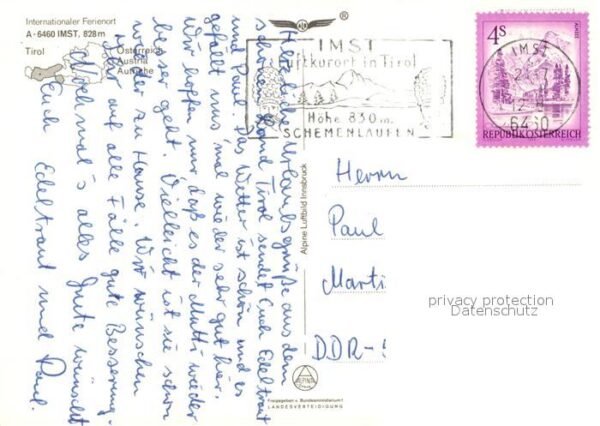 Internationaler Ferienort
A-6460 IMST, 828m
Tirol
Österreich
Austria
Autriche
®
IMST
Luftkurort in Tirol
Höhe 830 m.
SCHEMENLAUFEN
4S
ALMSEE
REPUBLIK ÖSTERREICH
IMST
6460
Herzliche Urlaubsgrüße aus dem
schönen Land Tirol sendet Euch Edeltraut
und Paul. Das Wetter ist schön und es
gefällt uns mal wieder sehr gut hier.
Wir hoffen nur daß es der Mutti wieder
besser geht. Vielleicht ist sie schon
wieder zu Hause. Wir wünschen
ihr auf alle Fälle gute Besserung.
Nochmal's alles Gute wünscht
Euch Edeltraut und Paul.
Alpine Luftbild Innsbruck
Herrn
Paul
Marti
DDR-
privacy protection
Datenschutz
Freigegeben v. Bundesministerium f.
LANDESVERTEIDIGUNG